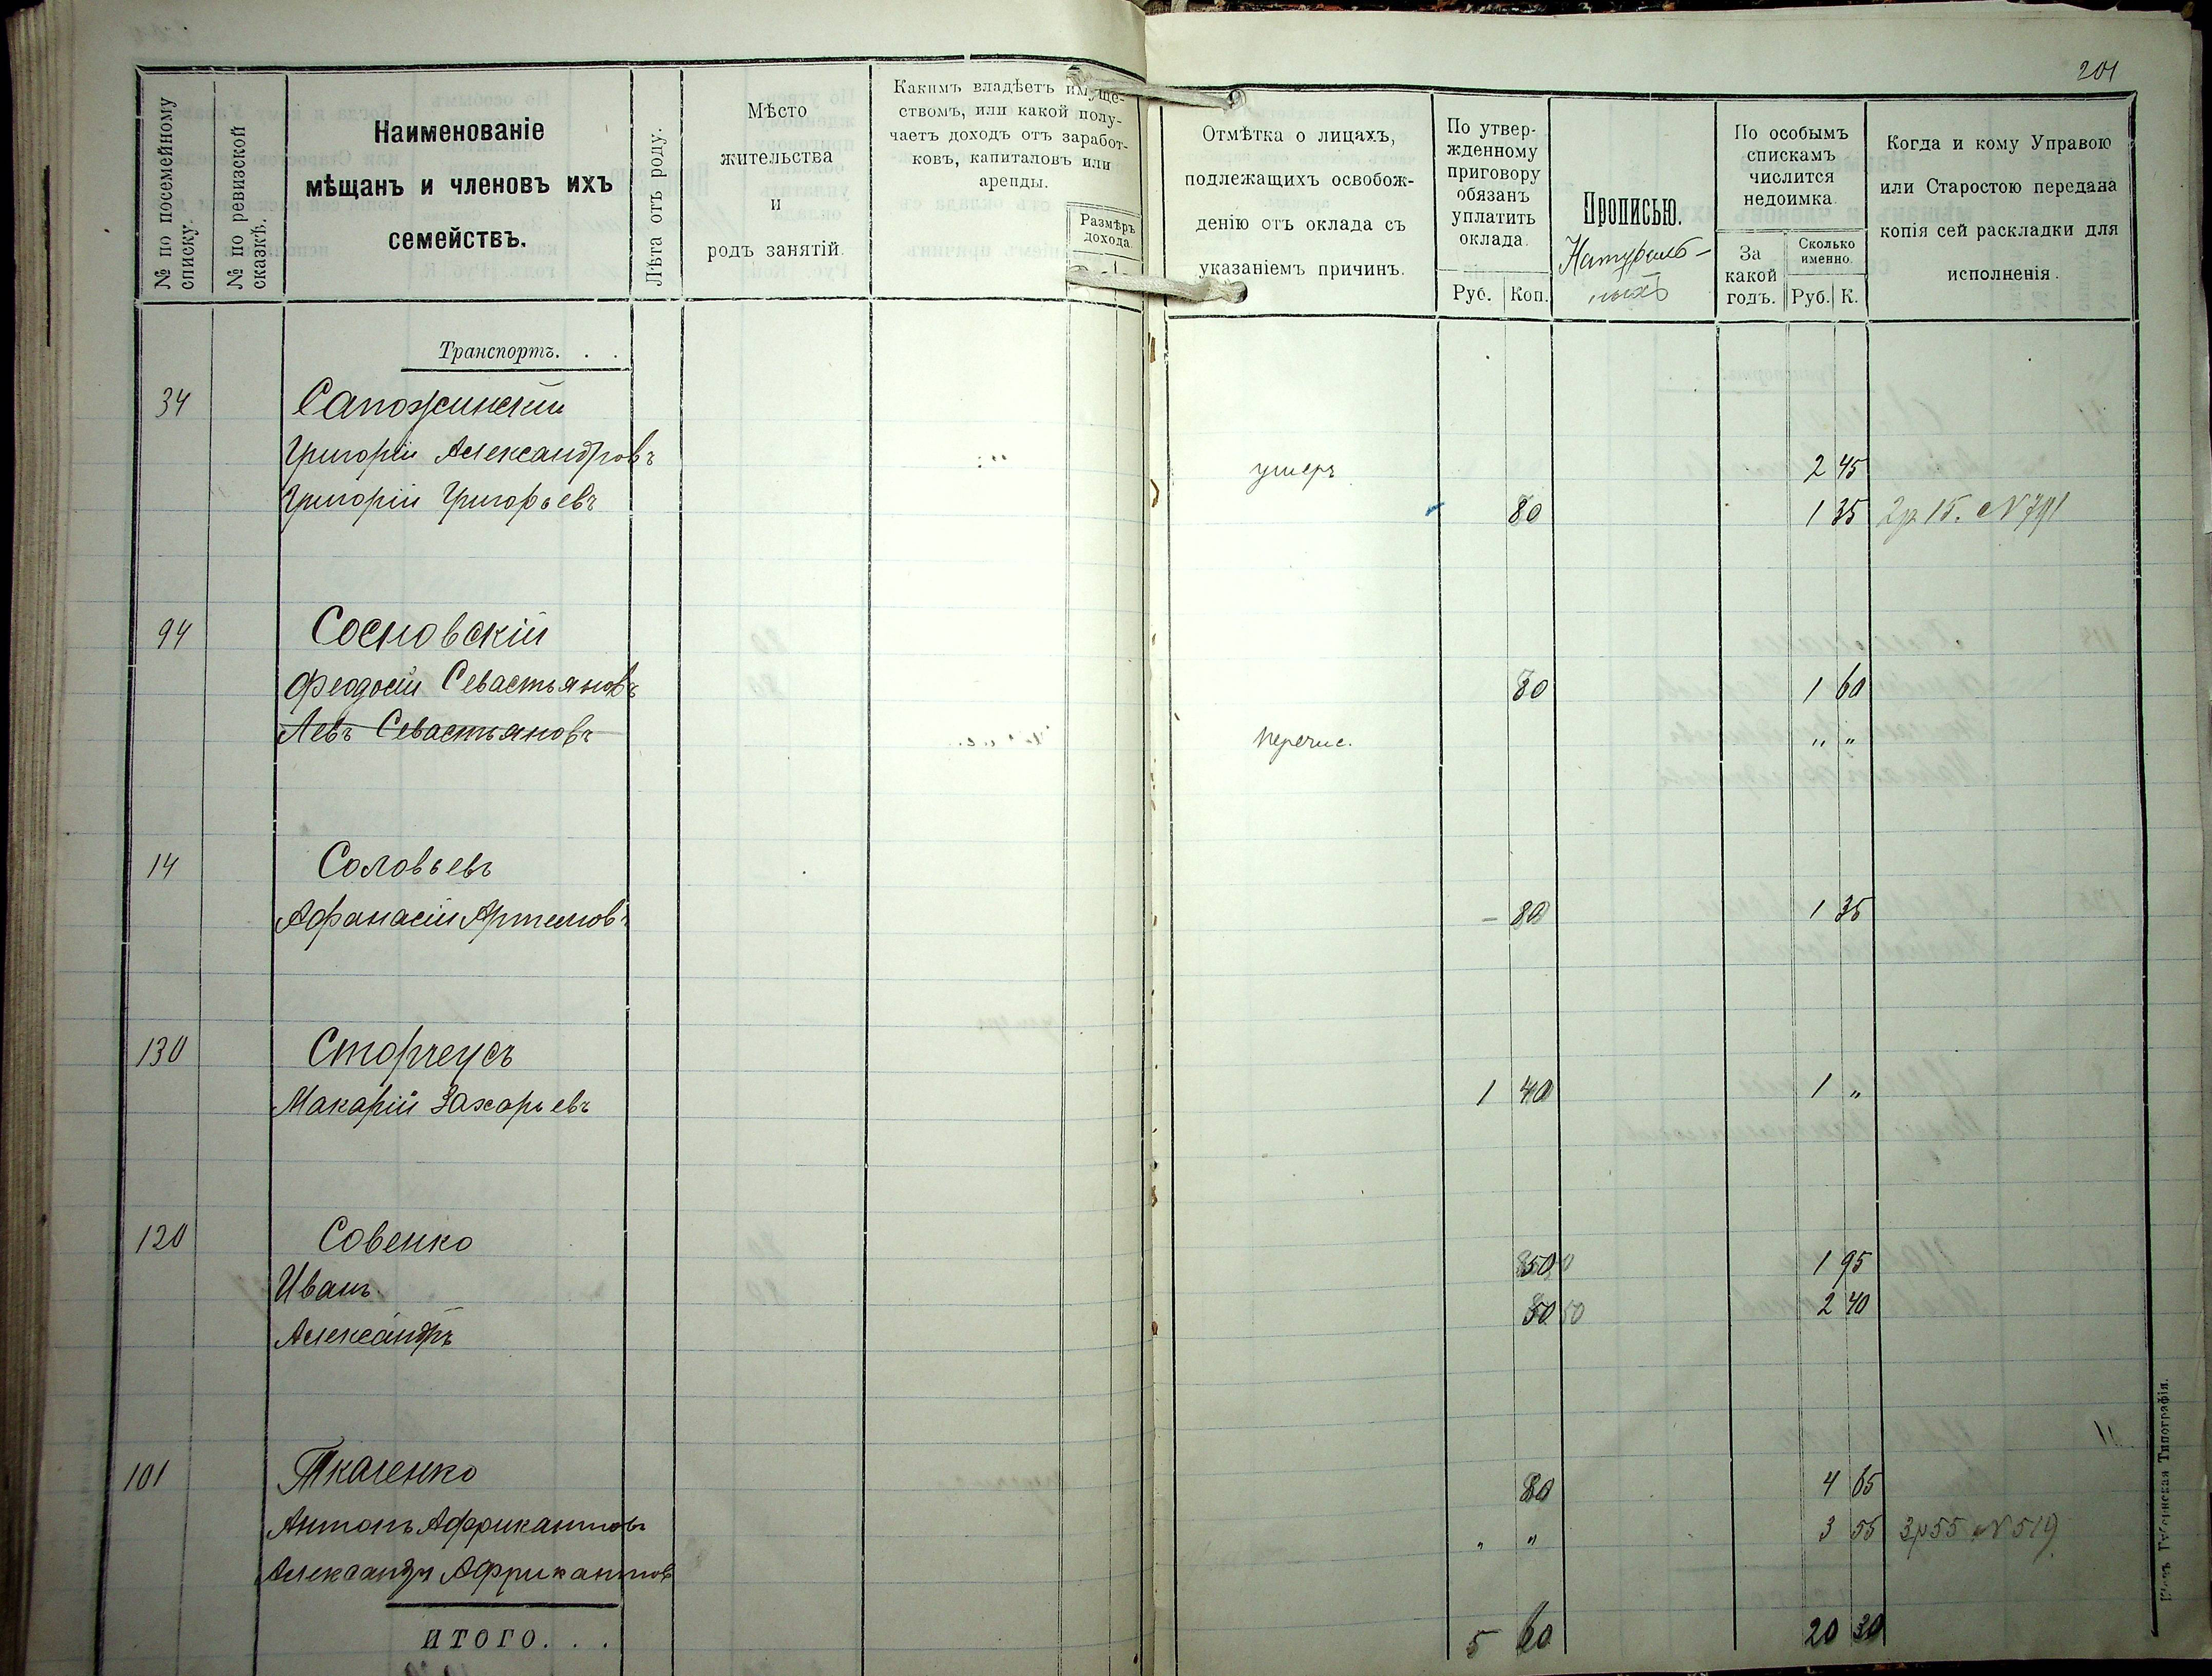 201
№ по посемейному списку.
№ по ревизской сказкѣ.
Наименованіе
мѣщанъ и членовъ ихъ
семействъ.
Лѣта отъ роду.
Мѣсто
жительства
и
родъ занятій.
Какимъ владѣетъ имуще-
ствомъ, или какой полу-
чаетъ доходъ отъ заработ-
ковъ, капиталовъ или
аренды.
Размѣръ
дохода.
Отмѣтка о лицахъ,
подлежащихъ освобож-
денію отъ оклада съ
указаніемъ причинъ.
По утвер-
жденному
приговору
обязанъ
уплатить
оклада.
Руб. Коп.
Прописью.
Натураль-
ныхъ
По особымъ
спискамъ
числится
недоимка.
За
какой
годъ.
Сколько
именно.
Руб. К.
Когда и кому Управою
или Старостою передана
копія сей раскладки для
исполненія.
Транспортъ. . .
34 Сапожинскій
Григорій Александровъ умеръ 2 45
Григорій Григорьевъ 80 1 35 2р 15. N 791
94 Сосновскій
Феодосій Севастьяновъ 80 1 60
Левъ Севастьяновъ перечис. " "
14 Соловьевъ
Афанасій Артемовъ - 80 1 35
130 Сторчеусъ
Макарій Захарьевъ 1 40 1 "
120 Совенко
Иванъ 50 1 95
Александръ 50 50 2 40
101 Ткаченко
Антонъ Африкантовъ 80 4 65
Александръ Африкантовъ " " 3 55 3р 55 N 519
ИТОГО. . . 5 60 20 30
Кіевъ Губернская Типографія.